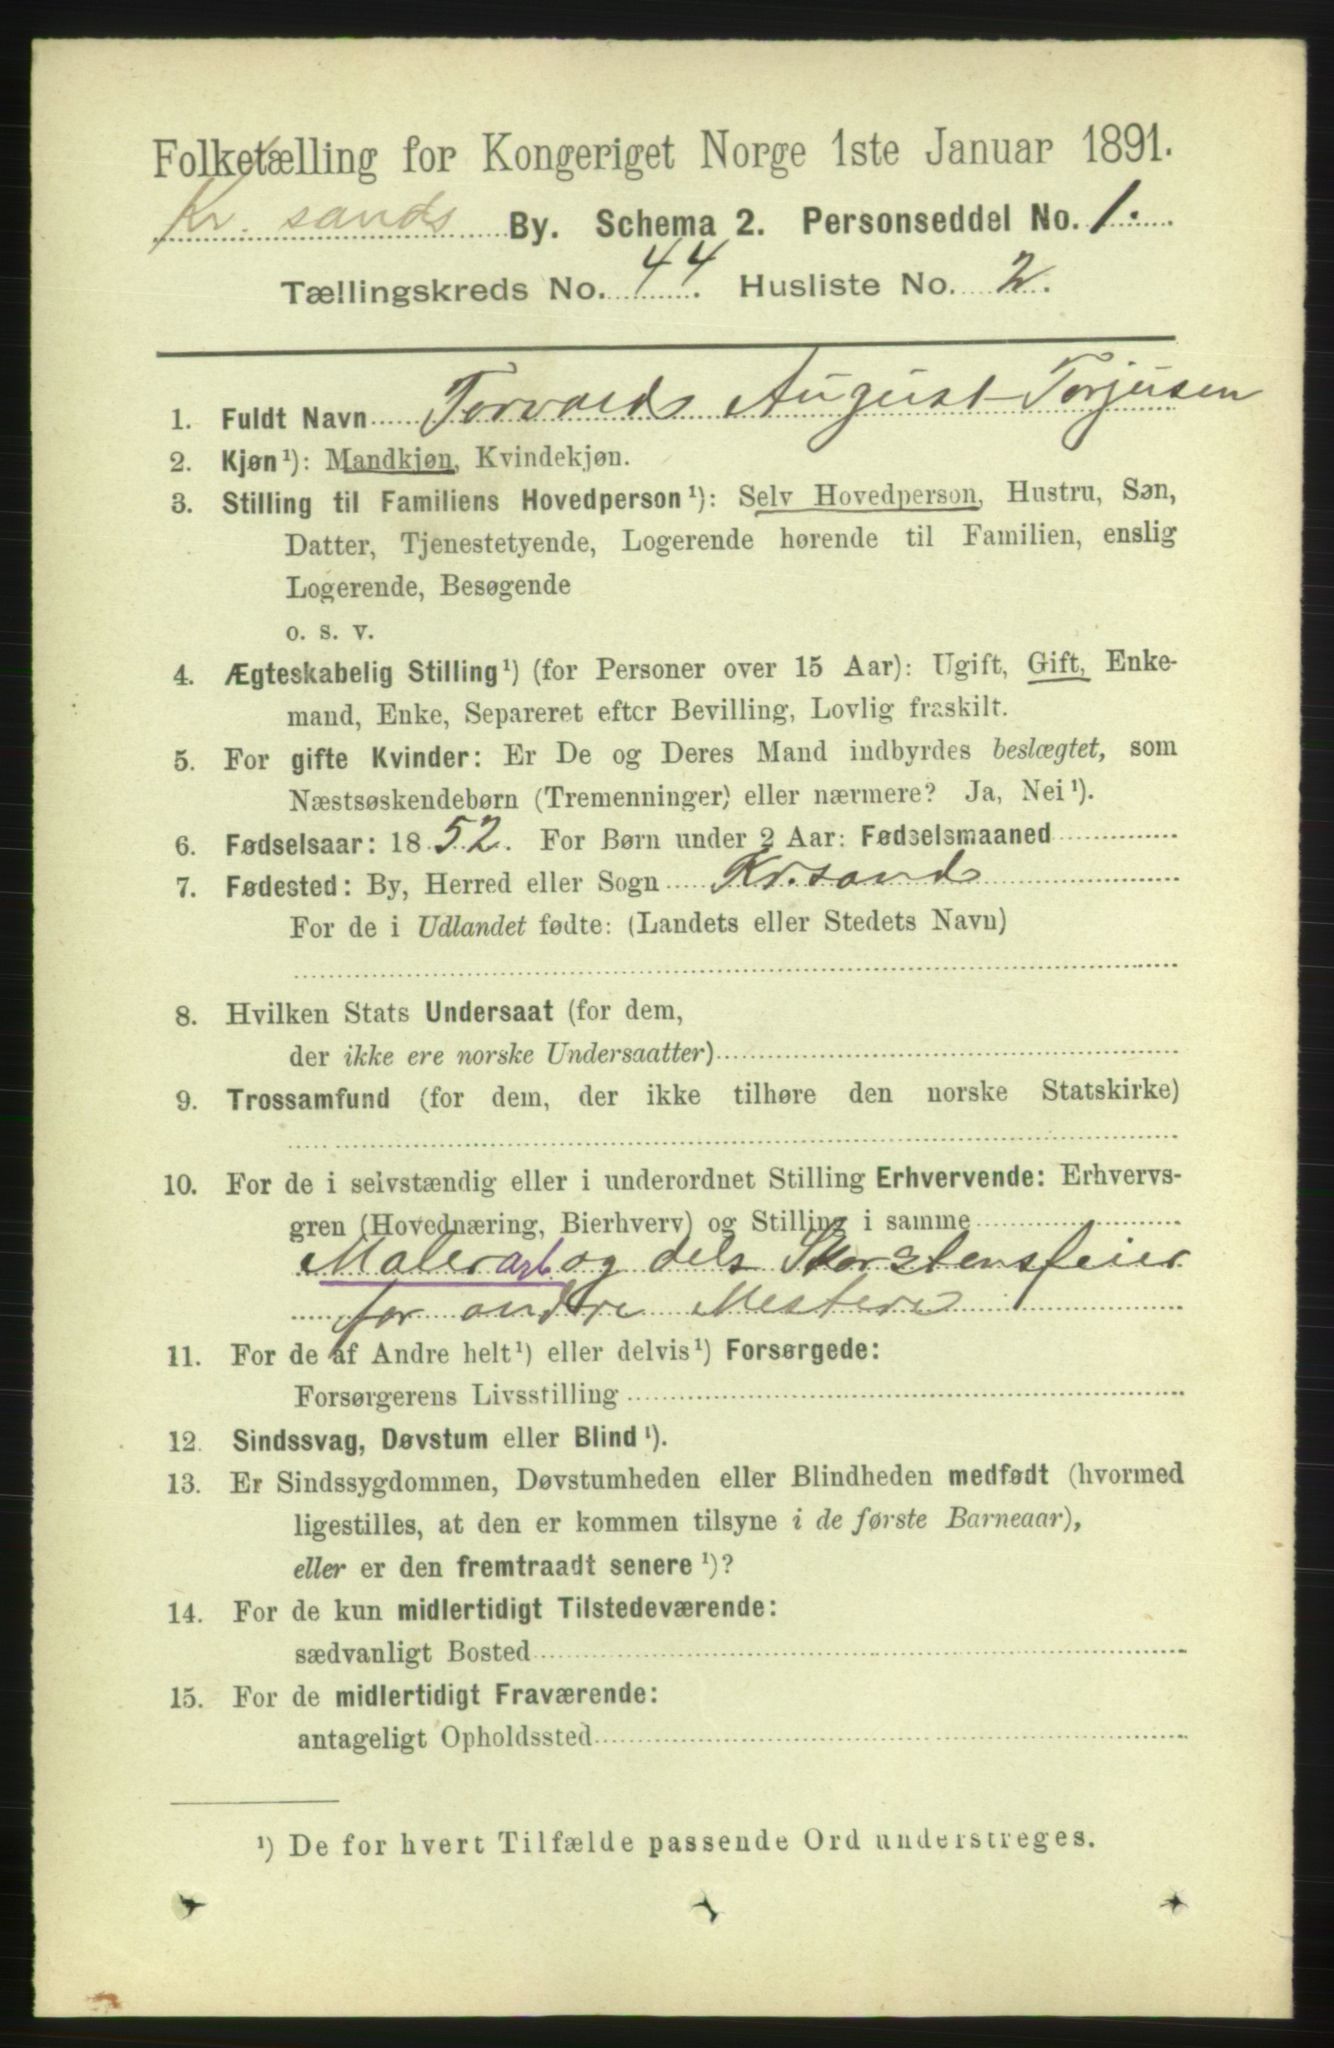 Folketælling for Kongeriget Norge 1ste Januar 1891.
Kr. sands By. Schema 2. Personseddel No. 1.
Tællingskreds No. 44. Husliste No. 2.
1. Fuldt Navn Torvald August Torjusen
2. Kjøn¹): Mandkjøn, Kvindekjøn.
3. Stilling til Familiens Hovedperson¹): Selv Hovedperson, Hustru, Søn,
Datter, Tjenestetyende, Logerende hørende til Familien, enslig
Logerende, Besøgende
o. s. v.
4. Ægteskabelig Stilling¹) (for Personer over 15 Aar): Ugift, Gift, Enke-
mand, Enke, Separeret efter Bevilling, Lovlig fraskilt.
5. For gifte Kvinder: Er De og Deres Mand indbyrdes beslægtet, som
Næstsøskendebørn (Tremenninger) eller nærmere? Ja, Nei¹).
6. Fødselsaar: 1852. For Børn under 2 Aar: Fødselsmaaned
7. Fødested: By, Herred eller Sogn Kr.sand
For de i Udlandet fødte: (Landets eller Stedets Navn)
8. Hvilken Stats Undersaat (for dem,
der ikke ere norske Undersaatter)
9. Trossamfund (for dem, der ikke tilhøre den norske Statskirke)
10. For de i selvstændig eller i underordnet Stilling Erhvervende: Erhvervs-
gren (Hovednæring, Bierhverv) og Stilling i samme
Maler arb og dels Skorstensfeier
for andre Mestere
11. For de af Andre helt¹) eller delvis¹) Forsørgede:
Forsørgerens Livsstilling
12. Sindssvag, Døvstum eller Blind¹).
13. Er Sindssygdommen, Døvstumheden eller Blindheden medfødt (hvormed
ligestilles, at den er kommen tilsyne i de første Barneaar),
eller er den fremtraadt senere¹)?
14. For de kun midlertidigt Tilstedeværende:
sædvanligt Bosted
15. For de midlertidigt Fraværende:
antageligt Opholdssted
¹) De for hvert Tilfælde passende Ord understreges.